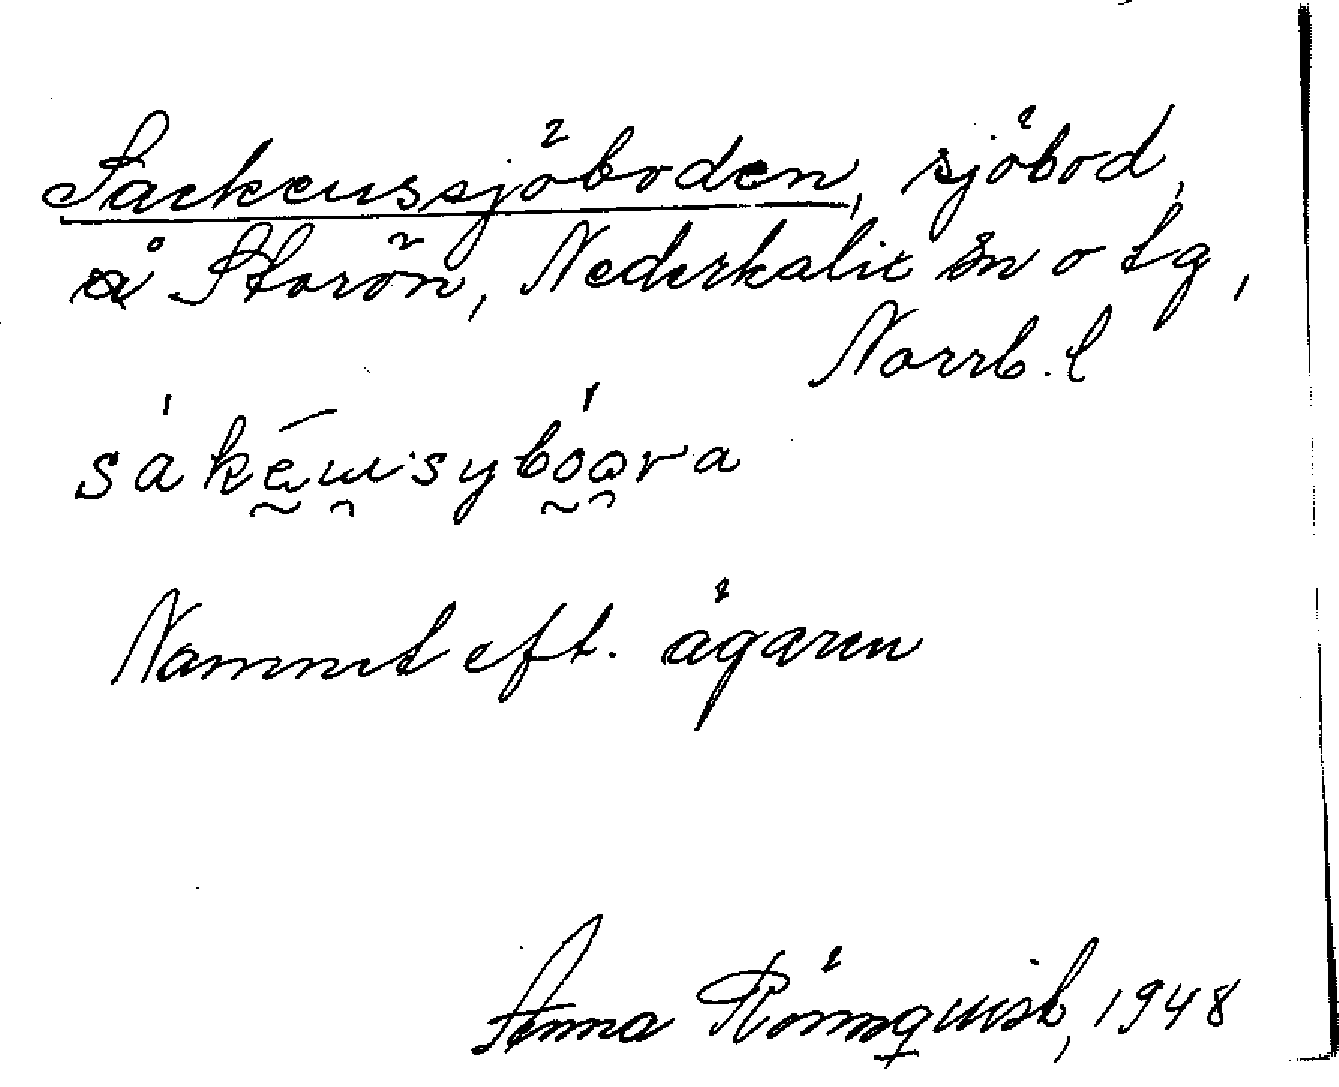 Sackeussjöboden, sjöbod,
å Storön, Nederkalix sn o tg,
Norrb. l
Namnet eft. ägaren
Anna Rönnquist, 1948